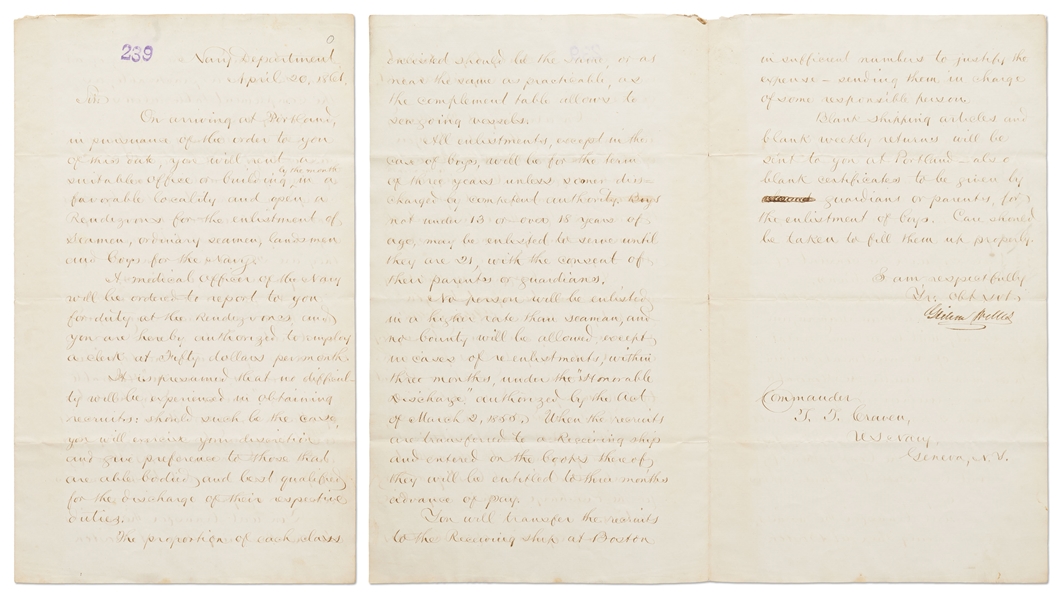 239
Navy Department
April 20, 1861.
Sir
On arriving at Portland,
in pursuance of the order to you
of this date, you will rent a
by the month
suitable Office or building, in a
favorable locality and open a
Rendezvous for the enlistment of
Seamen, ordinary seamen, landsmen
and boys for the Navy.
A medical Officer of the Navy
will be ordered to report to you
for duty at the Rendezvous and
you are hereby authorized to employ
a clerk at fifty dollars per month.
It is presumed that no difficul-
ty will be experienced in obtaining
recruits: should such be the case,
you will exercise your discretion
and give preference to those that
are able bodied and best qualified
for the discharge of their respective
duties.
The proportion of each class
enlisted should be the same, or as
near the same as practicable, as
the complement table allows to
seagoing vessels.
All enlistments, except in the
case of boys, will be for the term
of three years unless sooner dis-
charged by competent authority. Boys
not under 13 or over 18 years of
age, may be enlisted to serve until
they are 21, with the consent of
their parents or guardians.
No person will be enlisted
in a higher rate than seaman, and
no bounty will be allowed, except
in cases of re enlistments, within
three months, under the "Honorable
Discharge," authorized by the Act
of March 2, 1855. When the recruits
are transferred to a Receiving ship
and entered on the books thereof,
they will be entitled to three months
advance of pay.
You will transfer the recruits
to the Receiving ship at Boston
in sufficient numbers to justify the
expense - sending them in charge
of some responsible person.
Blank shipping articles and
blank weekly returns will be
sent to you at Portland - also
blank certificates to be given by
guardians or parents, for
the enlistment of boys. Care should
be taken to fill them up properly.
I am, respectfully
Yr. Obt Svt,
Gideon Welles
Commander
T. T. Craven,
U S Navy,
Geneva, N.Y.